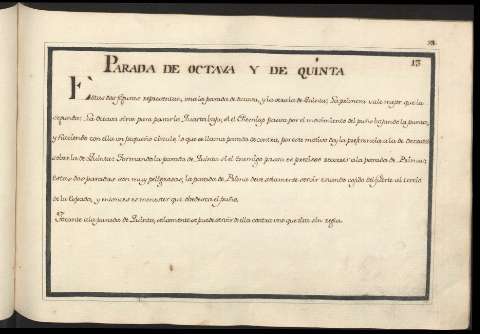 13
PARADA DE OCTAVA Y DE QUINTA
Estas dos figuras representan, una la parada de octava, y la otra la de Quinta; la primera vale mejor que la
segunda; la octava sirve para parar la Quarta baja, si el Enemigo para por el movimiento del puño bajando la punta,
y haciendo con ella un pequeño circulo, lo que se llama parada de contra, por este motivo doy la preferencia a la de octava
sobre la de Quinta: formando la parada de Quinta si el Enemigo para es preciso a la parada de Prima;
estas dos paradas son muy peligrosas, la parada de Prima deve solamente servir quando cojido del fuerte al tercio
de la Espada, y entonces es menester que obedezca el puño.
Tocante a la parada de Quinta, solamente se puede servir de ella contra uno que tira sin regla.